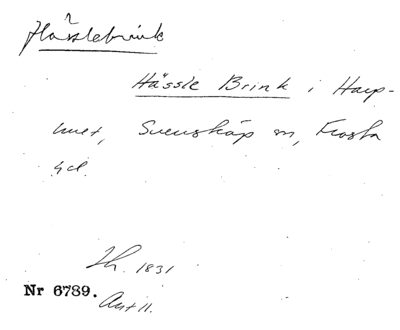 Hässlebrink
Hässle Brink i Harp-
hult, Svensköp sn, Frosta
hd.
Lh. 1831
Nr 6789.
Avt 11.